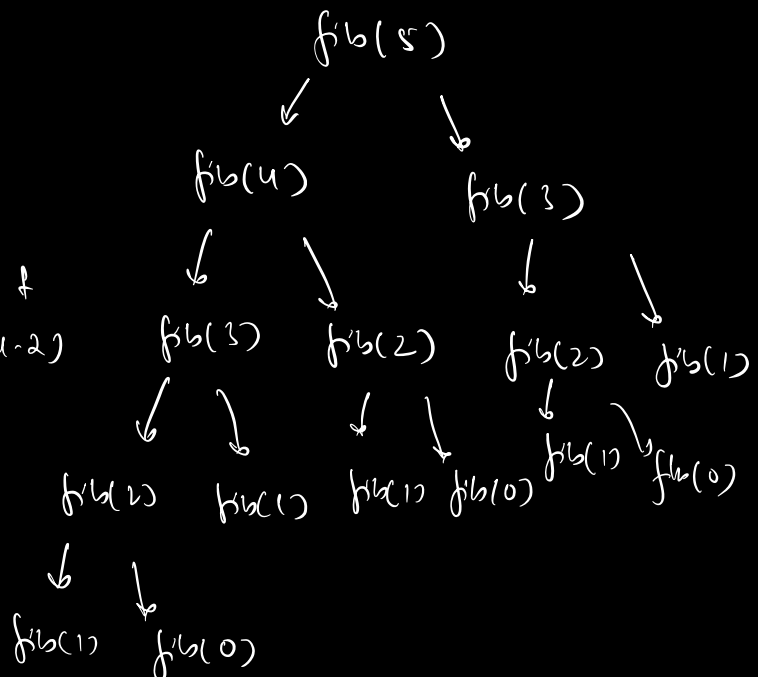 fib(5)
fib(4) fib(3)
f
n-2)
fib(3) fib(2) fib(2) fib(1)
fib(2) fib(1) fib(1) fib(0) fib(1) fib(0)
fib(1) fib(0)